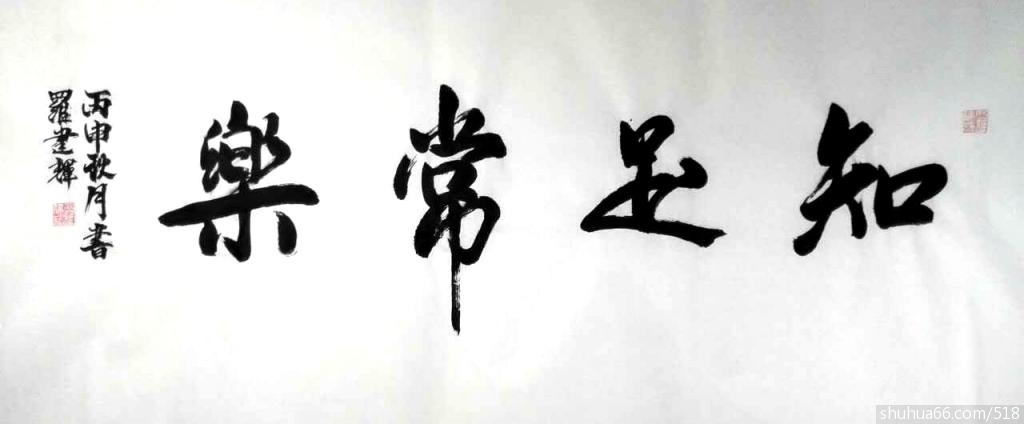 知足常樂
丙申秋月書
羅建輝
shuhua66.com/518